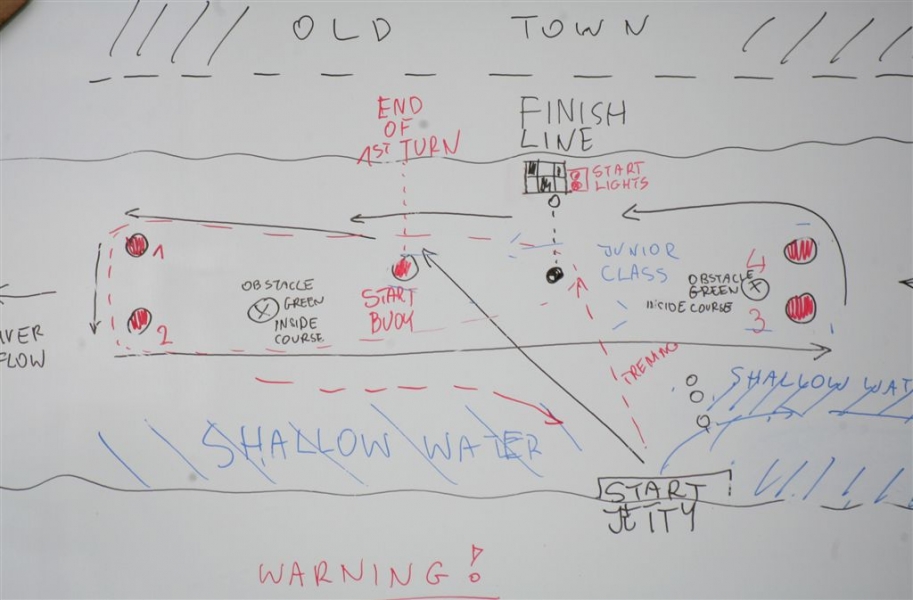 OLD TOWN
END
OF
1ST TURN
FINISH
LINE
START
LIGHTS
JUNIOR
CLASS
1
OBSTACLE
GREEN
INSIDE
COURSE
START
BUOY
4
OBSTACLE
GREEN
INSIDE COURSE
3
2
IVER
FLOW
SHALLOW WAT
SHALLOW WATER
START
JETITY
WARNING!